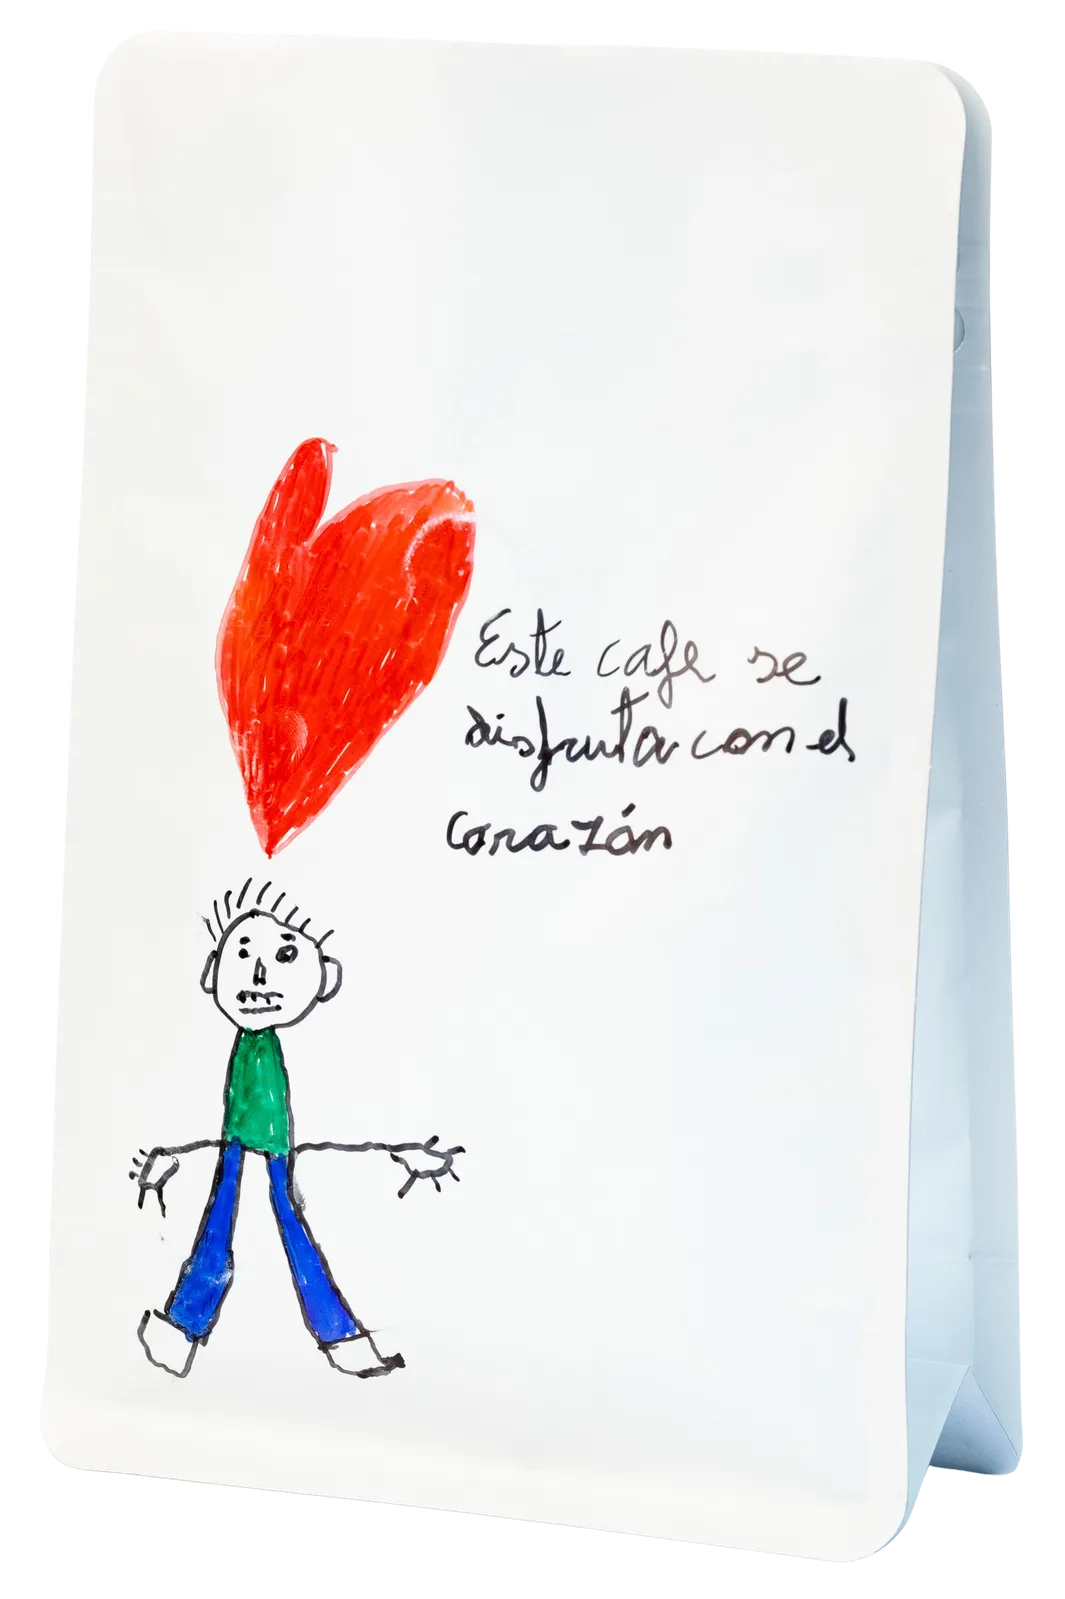 Este cafe se
disfruta con el
corazón